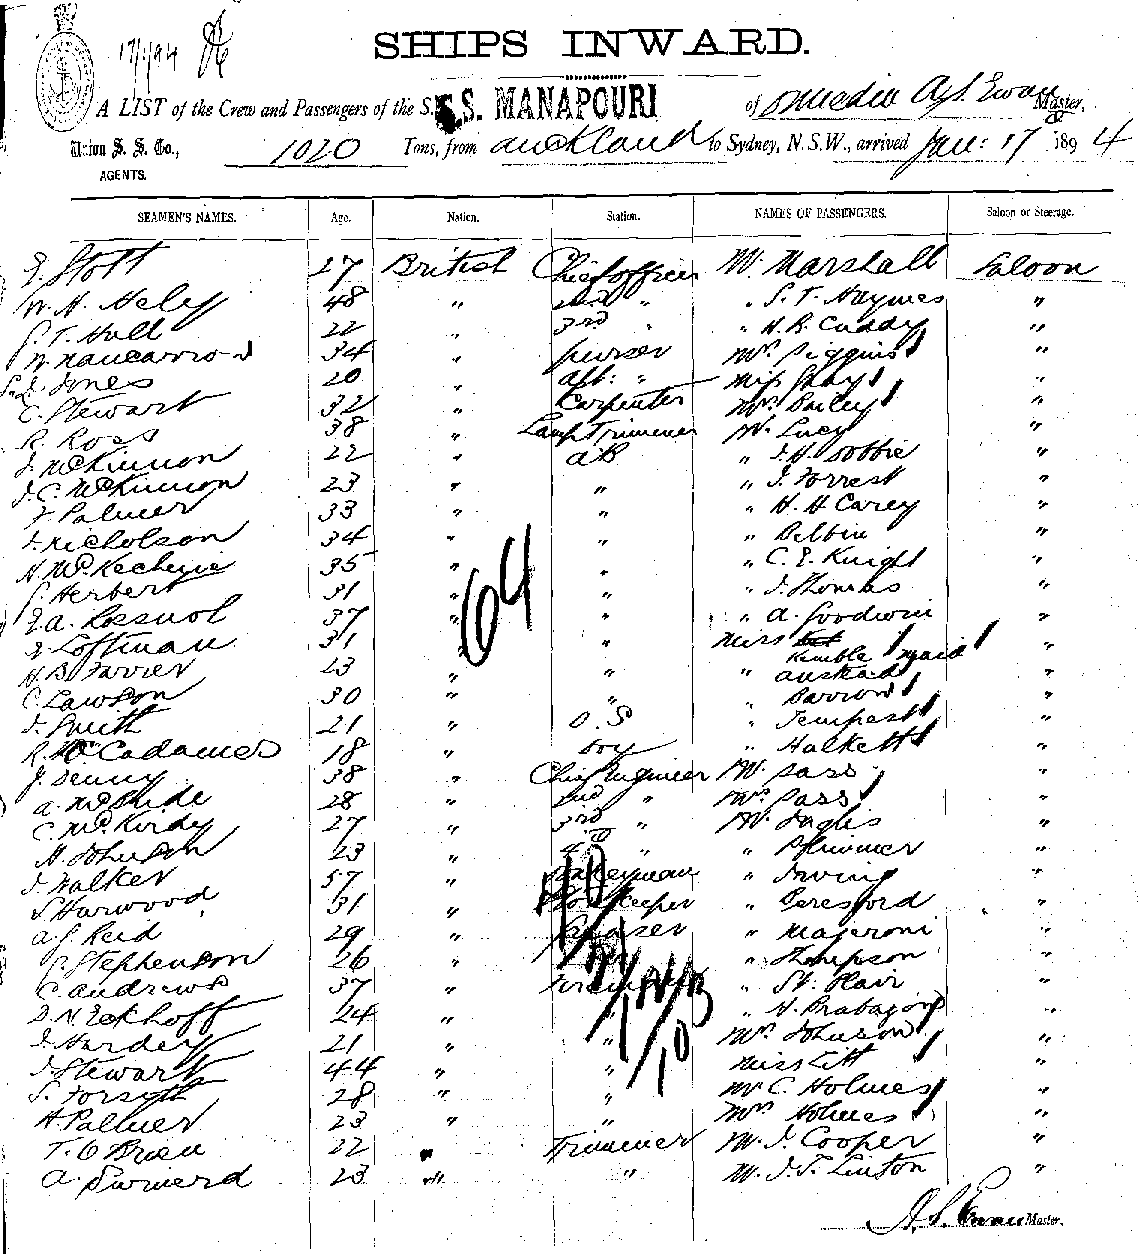 17/1/94
SHIPS INWARD.
A LIST of the Crew and Passengers of the S.S. MANAPOURI of Dunedin Master,
Union S. S. Co., 1020 Tons, from Auckland to Sydney, N.S.W., arrived Jan: 17 1894
AGENTS.
SEAMEN'S NAMES. Age. Nation. Station. NAMES OF PASSENGERS. Saloon or Steerage.
Stott 27 British Chief officer Mr Marshall Saloon
W. H. Nely 48 " 2nd " " S. T. Haymes "
S. T. Hall 22 " 3rd " " H. R. Cuddy "
34 " purser Mrs Piggins "
Jones 20 " asst: " Miss Gray "
C. Stewart 32 " Carpenter Mrs Bailey "
R. Ross 38 " Lamp Trimmer Mr Lucy "
J. McKinnon 22 " AB " J. H. Dobbie "
J. C. McKinnon 23 " " " J. Forrest "
F. Palmer 33 " " " H. H Carey "
J. Nicholson 34 " " " Belbin "
H. McKechnie 35 " " " C. E. Knight "
S. Herbert 31 " " " J. Thomas "
37 " " " A. Goodwin "
31 " " Miss Kemble / maid "
H. B. Farrer 23 " " "
C. Lawson 30 " " " Barrow "
J. Smith 21 " O. S " Tempest "
R. McCadamer 18 " boy " Halkett "
J. Denny 38 " Chief Engineer Mr Pass "
A. McBride 28 " 2nd " Mrs Pass "
C. McKirdy 27 " 3rd " Mr Inglis "
H. Johnson 23 " 4th " " Plimmer "
J. Walker 57 " " Irving "
S Harwood 31 " Storekeeper " Beresford "
A. J. Reid 29 " Greaser " Majeroni "
G. Stephenson 26 " " Thompson "
C. Andrews 37 " Fireman " St. Clair "
D. N. Eckhoff 24 " " H. Brabazon "
J. Hardey 21 " " Mrs Johnson "
J. Stewart 44 " " Miss Titt "
S. Forsyth 28 " " Mr C. Holmes "
H. Palmer 23 " " Mrs Holmes "
T. O Brien 22 " Trimmer Mr J. Cooper "
A. 23 " " Mr J. T. Linton "
64
Master.